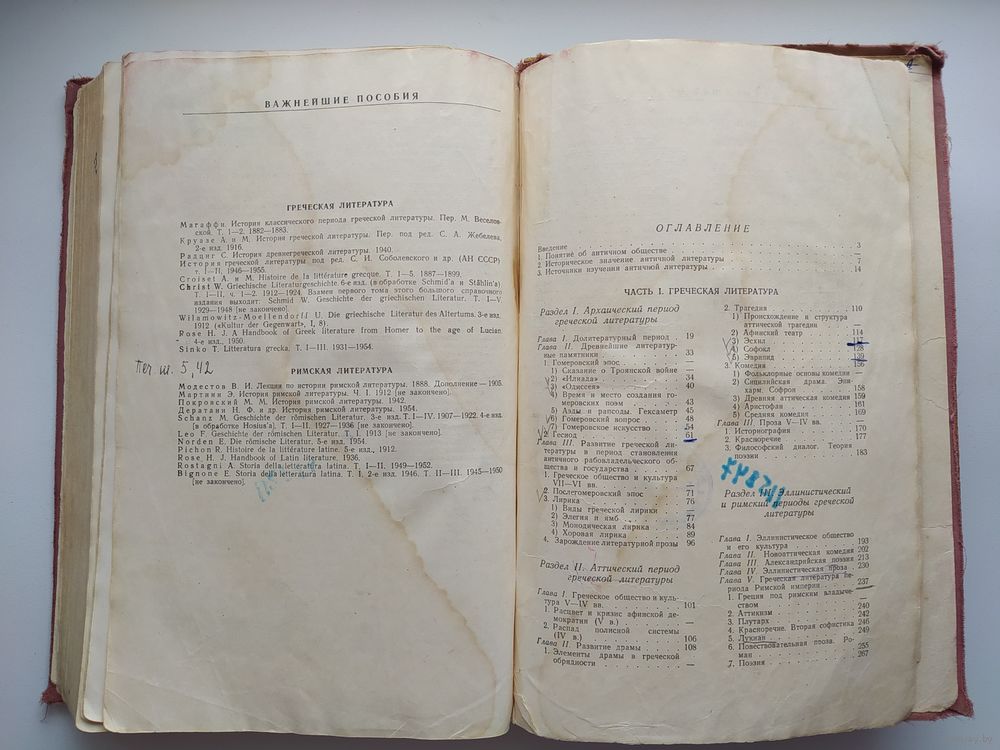 ВАЖНЕЙШИЕ ПОСОБИЯ
ГРЕЧЕСКАЯ ЛИТЕРАТУРА
Магаффи. История классического периода греческой литературы. Пер. М. Веселов-
ской. Т. I—2. 1882—1883.
Круазе А. и М. История греческой литературы. Пер. под ред. С. А. Жебелева,
2-е изд. 1916.
Радциг С. История древнегреческой литературы. 1940.
История греческой литературы под ред. С. И. Соболевского и др. (АН СССР)
т. I—II, 1946—1955.
Croiset A. и M. Histoire de la littérature grecque. T. I—5. 1887—1899.
Christ W. Griechische Literaturgeschichte 6-е изд. (в обработке Schmid'a и Stählin'a)
T. I—II, ч. 1—2. 1912—1924. Взамен первого тома этого большого справочного
издания выходит: Schmid W. Geschichte der griechischen Literatur. T. I—V
1929—1948 [не закончено].
Wilamowitz-Moellendorff U. Die griechische Literatur des Altertums. 3-е изд.
1912 («Kultur der Gegenwart», I, 8).
Rose H. J. A Handbook of Greek literature from Homer to the age of Lucian.
4-е изд., 1950.
Sinko T. Litteratura grecka. T. I—III. 1931—1954.
Печ. ш. 5,42
РИМСКАЯ ЛИТЕРАТУРА
Модестов В. И. Лекции по истории римской литературы. 1888. Дополнение — 1905.
Мартини Э. История римской литературы. Ч. I. 1912 [не закончено].
Покровский М. М. История римской литературы. 1942.
Дератани Н. Ф. и др. История римской литературы. 1954.
Schanz M. Geschichte der römischen Literatur. 3-е изд. T. I—IV. 1907—1922. 4-е изд.
[в обработке Hosius'a], T. I—II. 1927—1936 [не закончено].
Leo F. Geschichte der römischen Literatur. T. I. 1913 [не закончено].
Norden E. Die römische Literatur. 5-е изд. 1954.
Pichon R. Histoire de la littérature latine. 5-е изд., 1912.
Rose H. J. Handbook of Latin literature. 1936.
Rostagni A. Storia della letteratura latina. T. I—II. 1949—1952.
Bignone E. Storia della letteratura latina. T. I, 2-е изд. 1946. T. II—III. 1945—1950
[не закончено].
ОГЛАВЛЕНИЕ
Введение 3
1. Понятие об античном обществе —
2. Историческое значение античной литературы 7
3. Источники изучения античной литературы 14
ЧАСТЬ I. ГРЕЧЕСКАЯ ЛИТЕРАТУРА
Раздел I. Архаический период
греческой литературы
Глава I. Долитературный период 19
Глава II. Древнейшие литератур-
ные памятники 33
1. Гомеровский эпос —
1) Сказание о Троянской войне —
2) «Илиада» 34
3) «Одиссея» 40
4) Время и место создания го-
меровских поэм 43
5) Аэды и рапсоды. Гексаметр 45
6) Гомеровский вопрос 48
7) Гомеровское искусство 54
2. Гесиод 61
Глава III. Развитие греческой ли-
тературы в период становления
античного рабовладельческого об-
щества и государства 67
1. Греческое общество и культура
VII—VI вв. —
2. Послегомеровский эпос 71
3. Лирика 76
1) Виды греческой лирики —
2) Элегия и ямб 77
3) Монодическая лирика 84
4) Хоровая лирика 89
4. Зарождение литературной прозы 96
Раздел II. Аттический период
греческой литературы
Глава I. Греческое общество и куль-
тура V—IV вв. 101
1. Расцвет и кризис афинской де-
мократии (V в.) —
2. Распад полисной системы
(IV в.) 106
Глава II. Развитие драмы 108
1. Элементы драмы в греческой
обрядности —
2. Трагедия 110
1) Происхождение и структура
аттической трагедии —
2) Афинский театр 114
3) Эсхил
4) Софокл 128
5) Эврипид 139
3. Комедия 156
1) Фольклорные основы комедии —
2) Сицилийская драма. Эпи-
харм. Софрон 158
3) Древняя аттическая комедия 159
4) Аристофан 161
5) Средняя комедия 169
Глава III. Проза V—IV вв. —
1. Историография 170
2. Красноречие 177
3. Философский диалог. Теория
поэзии 183
Раздел III. Эллинистический
и римский периоды греческой
литературы
Глава I. Эллинистическое общество
и его культура 193
Глава II. Новоаттическая комедия 202
Глава III Александрийская поэзия 213
Глава IV Эллинистическая проза 230
Глава V. Греческая литература пе-
риода Римской империи 237
1. Греция под римским владыче-
ством —
2. Аттикизм 240
3. Плутарх 242
4. Красноречие. Вторая софистика 246
5. Лукиан 249
6. Повествовательная проза. Ро-
ман 255
7. Поэзия 267